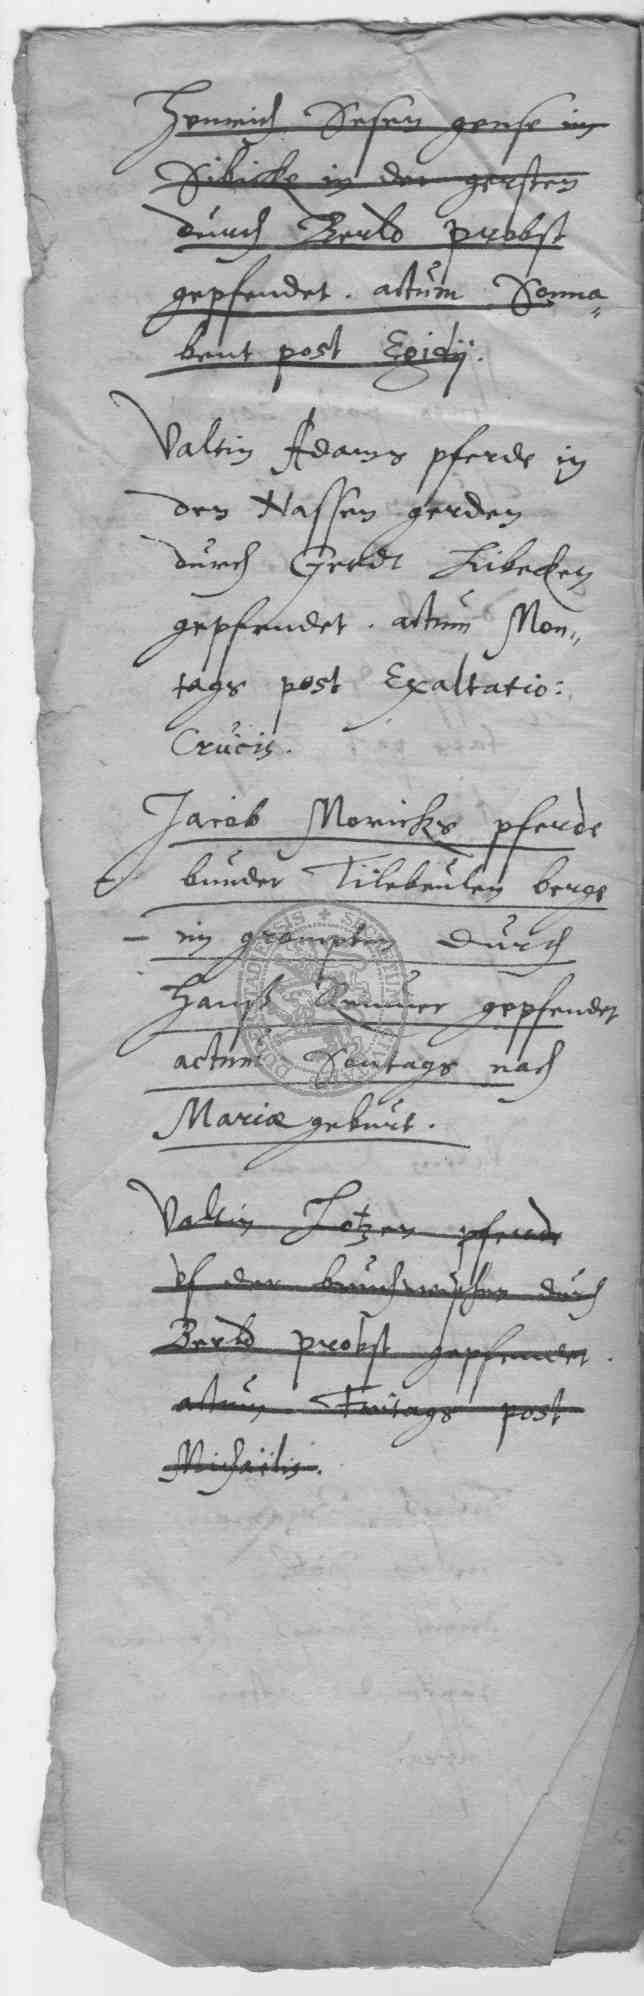 Henrich Sesen gense im
Sikicke in der gersten
durch Berld probst
gepfendet. actum Sonna„
bent post Egidij.
Valtin Adams pferde in
den Nassen gerden
durch Gerdt Lübecken
gepfendet. actum Mon„
tags post Exaltatio:
Crucis.
Jacob Morickes pferde
bunder Tilebeulen berge
im grompten durch
Hanß Remmer gepfendet
actum Sontags nach
Mariæ geburt.
Valtin Lotzen pferde
vf der bruchwischen durch
Berld probst gepfendet.
actum Freitags post
Michaëlis.